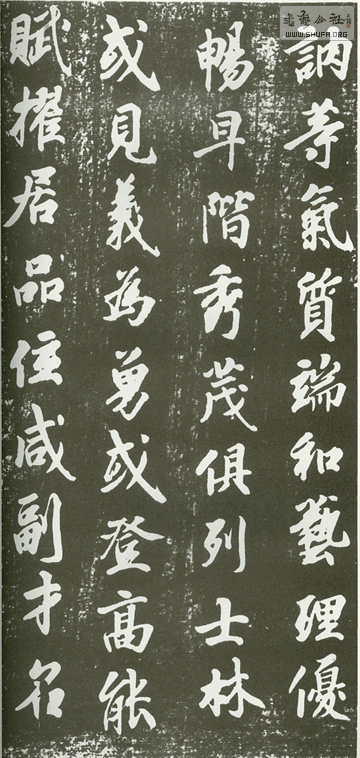 訥等氣質端和藝理優
暢早階秀茂俱列士林
或見義為勇或登高能
賦擢居品位咸副才名
WWW.SHUFA.ORG